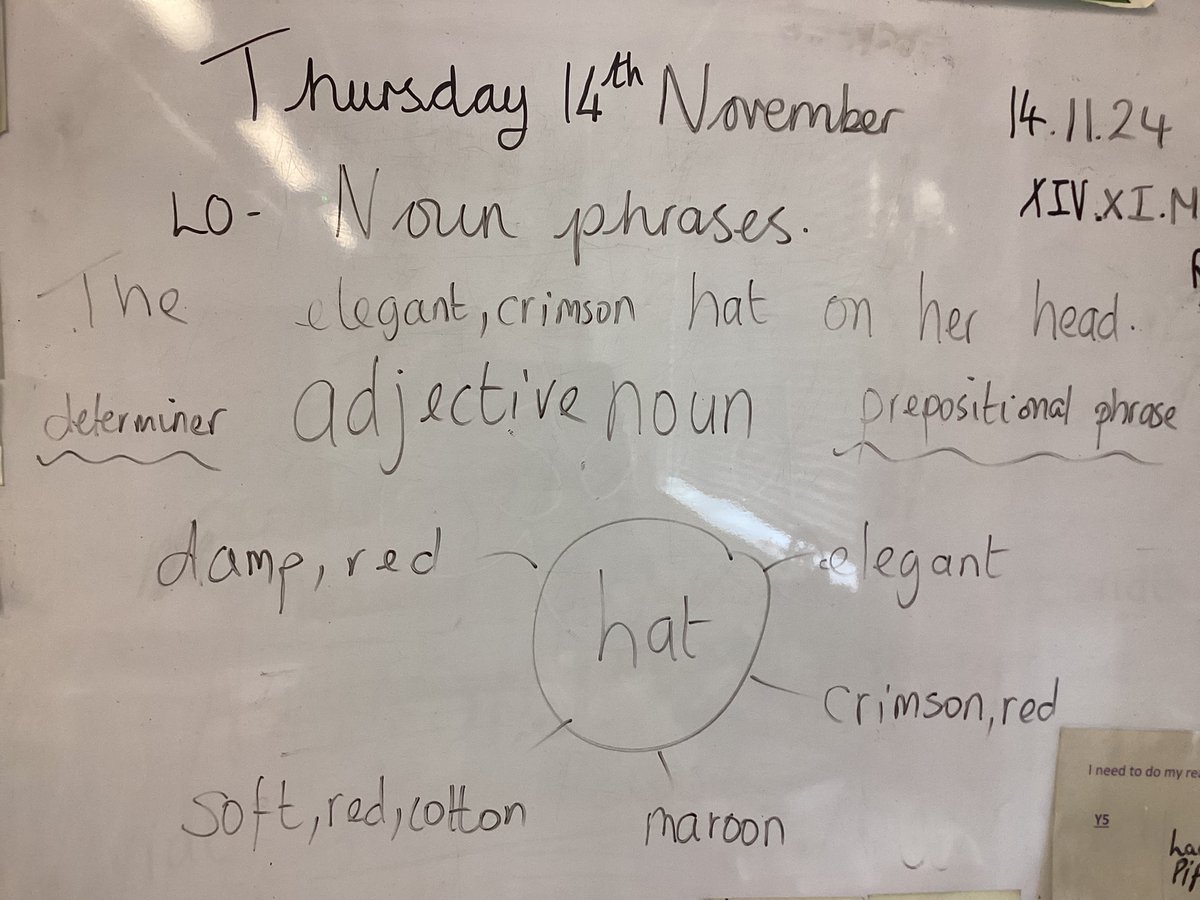 Thursday 14th November 14.11.24
LO- Noun phrases. XIV.XI.M
The elegant, crimson hat on her head.
determiner adjective noun prepositional phrase
damp, red hat elegant
crimson, red
soft, red, cotton maroon
I need to do my
Y5